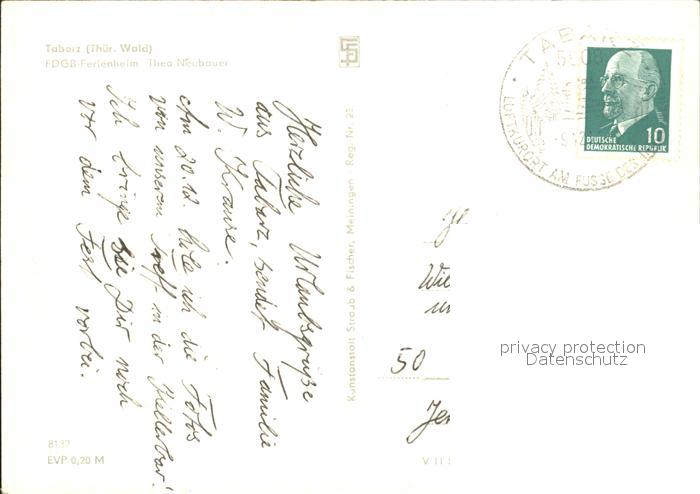 Tabarz (Thür. Wald)
FDGB-Ferienheim Theo Neubauer
Herzliche Urlaubsgrüße
aus Tabarz, sendet Familie
W. Krause.
Am 20.12. hole ich die Fotos
von unserem Treff in der Kellerbar!
Ich bringe sie Dir noch
vor dem Fest vorbei.
8182
EVP 0,20 M
Kunstanstalt Straub & Fischer, Meiningen Reg.-Nr. 25
TABARZ
5808
LUFTKURORT AM FUSSE DES
10
DEUTSCHE
DEMOKRATISCHE REPUBLIK
50
privacy protection
Datenschutz